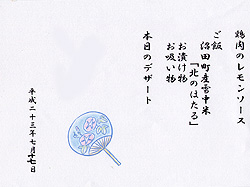 鶏肉のレモンソース
ご飯
沼田町産雪中米
「北のほたる」
お漬け物
お吸い物
本日のデザート
平成二十三年七月十七日